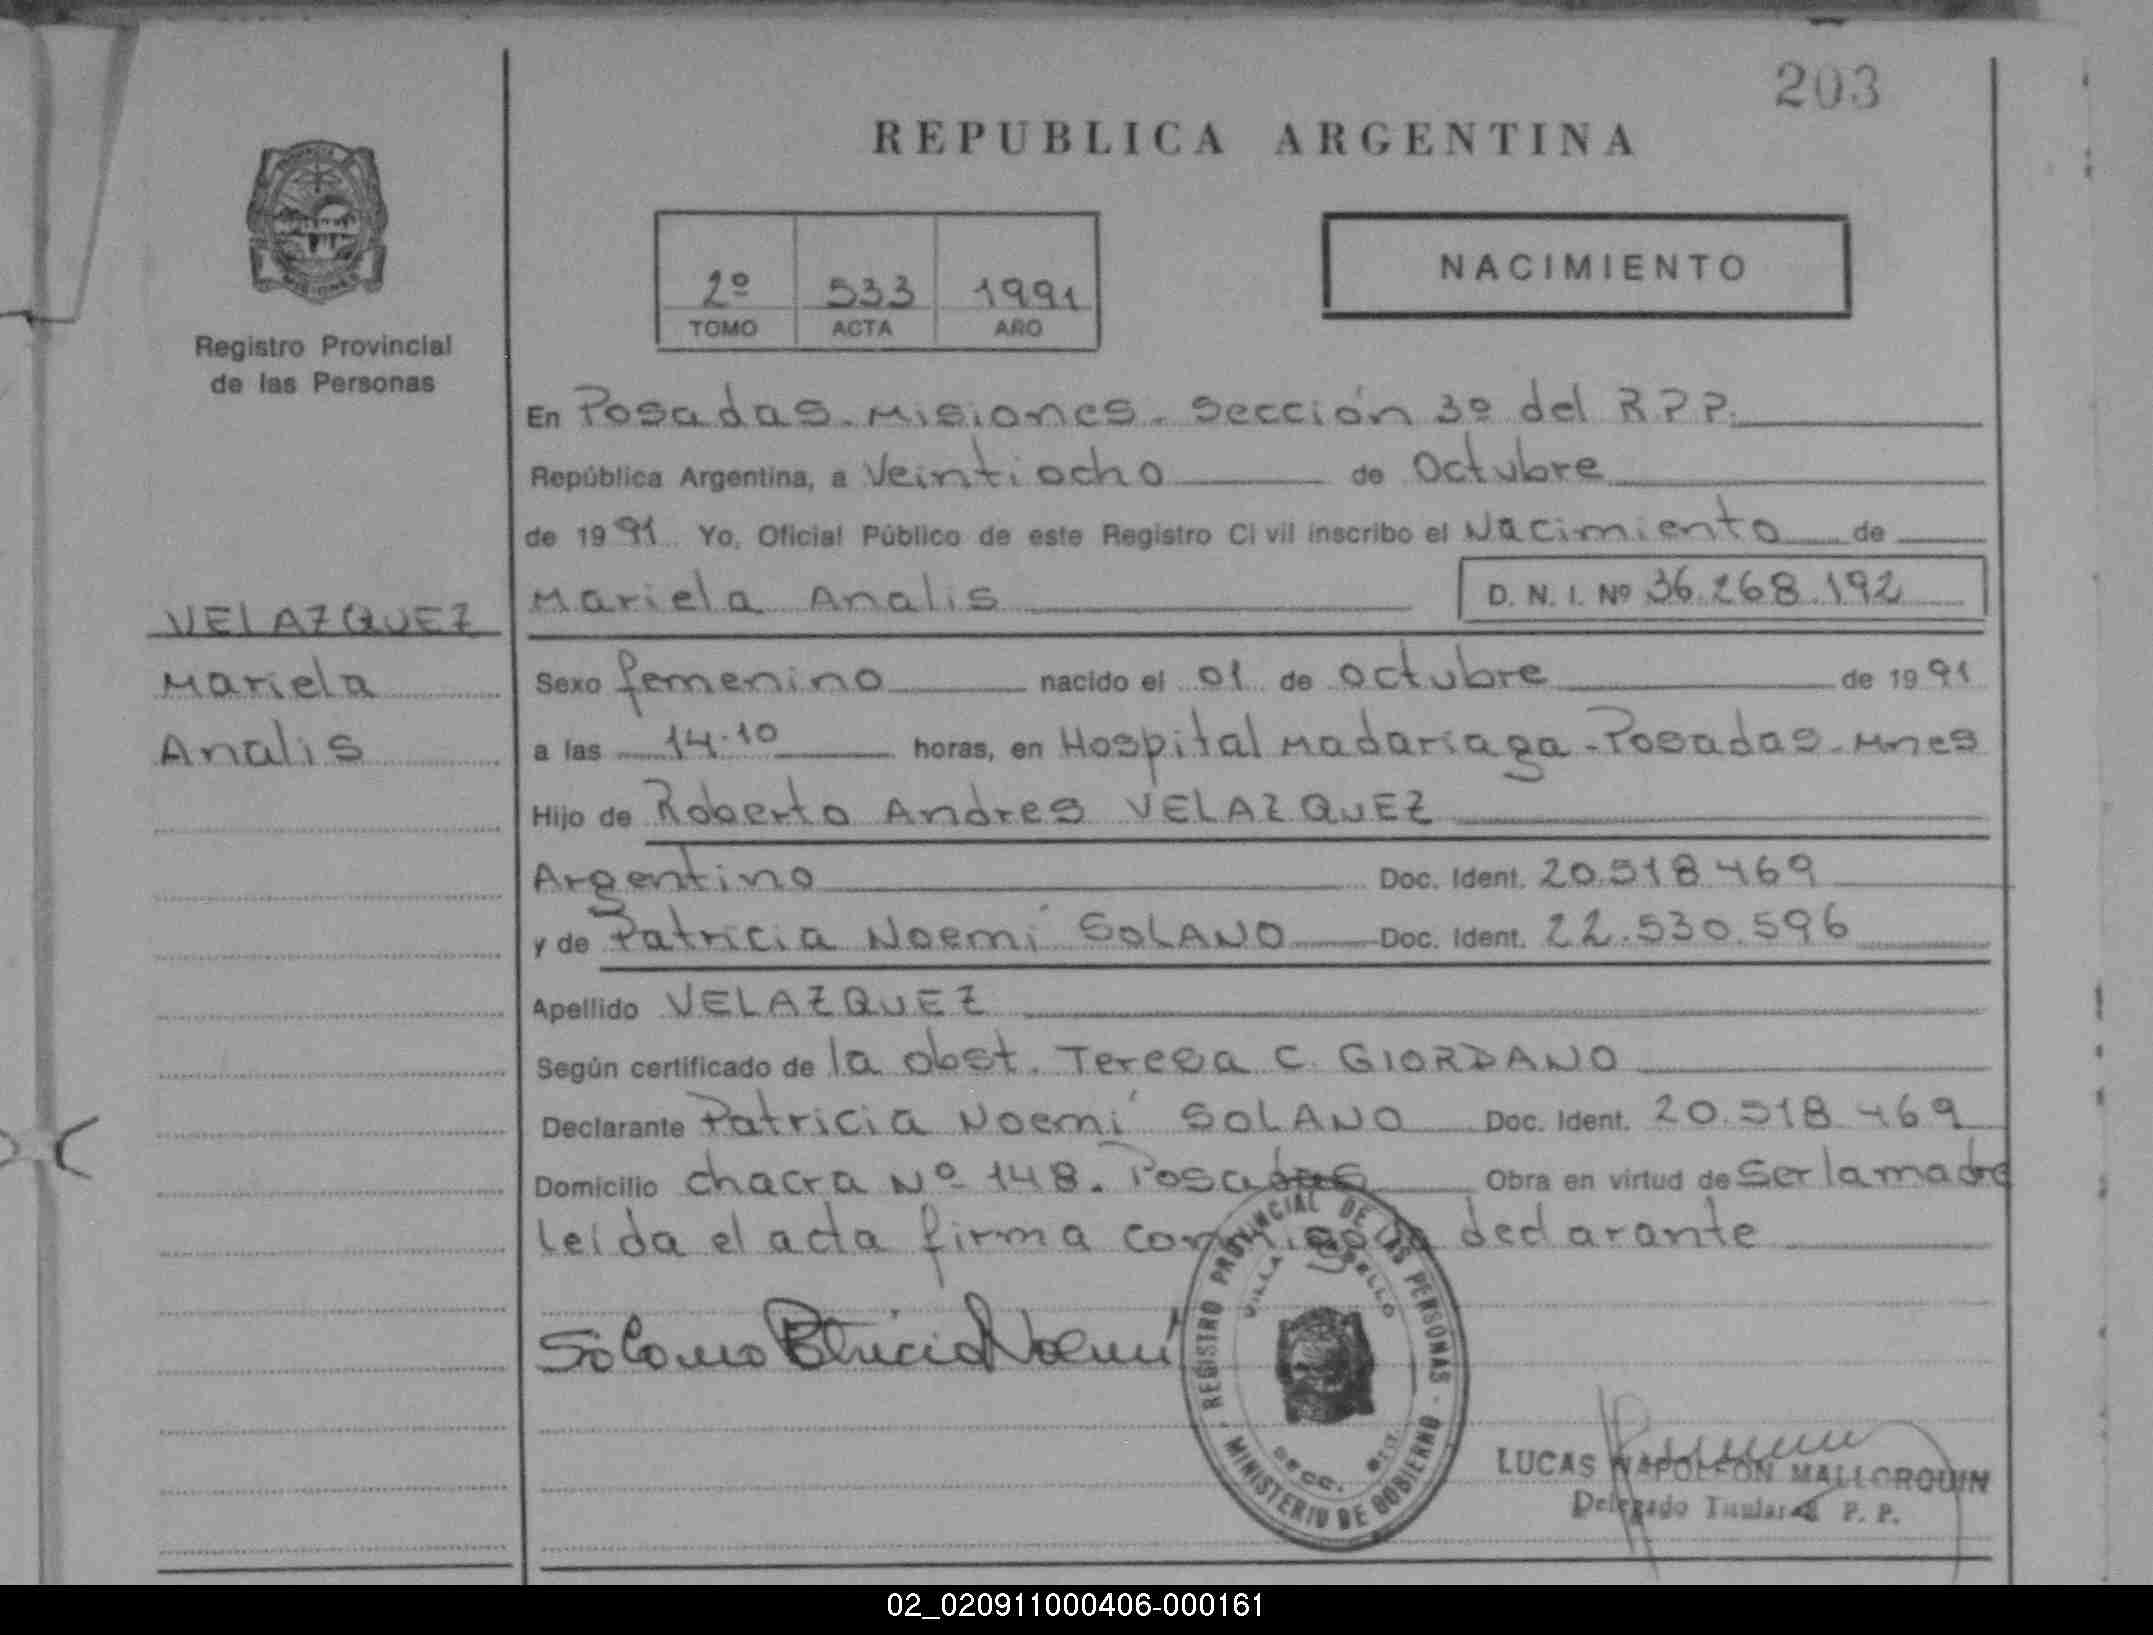 203
REPUBLICA ARGENTINA
2º 533 1991
TOMO ACTA AÑO
NACIMIENTO
Registro Provincial
de las Personas
VELAZQUEZ
Mariela
Analis
En Posadas - Misiones - Sección 3º del R P P.
República Argentina, a Veintiocho de Octubre
de 1991 Yo, Oficial Público de este Registro Civil inscribo el Nacimiento de
Mariela Analis D. N. I. Nº 36.268.192
Sexo femenino nacido el 01 de octubre de 1991
a las 14.10 horas, en Hospital Madariaga - Posadas - Mnes
Hijo de Roberto Andres VELAZQUEZ
Argentino Doc. Ident. 20.518.469
y de Patricia Noemí SOLANO Doc. Ident. 22.530.596
Apellido VELAZQUEZ
Según certificado de la obst. Teresa C. GIORDANO
Declarante Patricia Noemí SOLANO Doc. Ident. 20.518.469
Domicilio chacra Nº 148. Posadas Obra en virtud de Ser la madre
Leida el acta firma conmigo la declarante
Solano Patricia Noemí
REGISTRO PROVINCIAL DE LAS PERSONAS
VILLA
SECC.
MINISTERIO DE GOBIERNO
LUCAS NAPOLEON MALLORQUIN
Delegado Titular P. P.
02_020911000406-000161